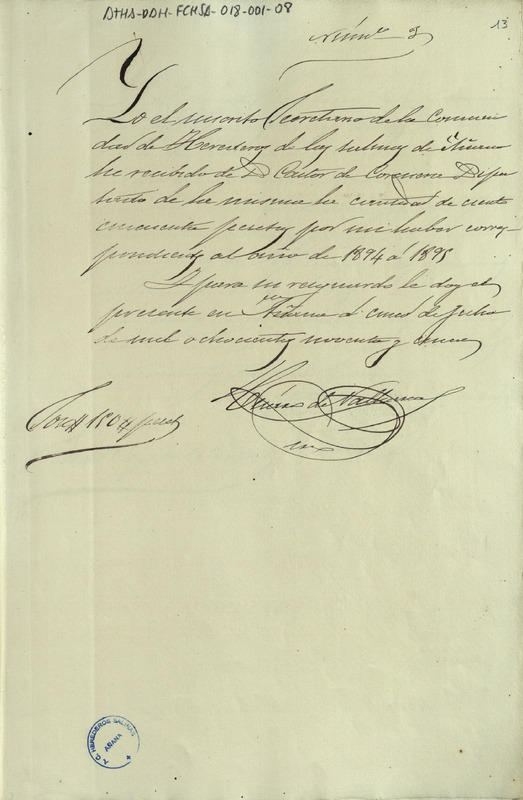 ATHA-DDH-FCHSA-018-001-08
13
Núm.º 9
Yo el suscrito Secretario de la Comuni
dad de Herederos de las salinas de Añana
he recibido de D. Castor de Corcuera Depo
sitario de la misma la cantidad de ciento
cincuenta pesetas por mi haber corres-
pondiente al año de 1894 á 1895
Y para su resguardo le doy el
presente en Añana á cinco de Julio
de mil ochocientos noventa y cinco
de
Son # 150 # pesetas
A. C. HEREDEROS SALINAS
AÑANA